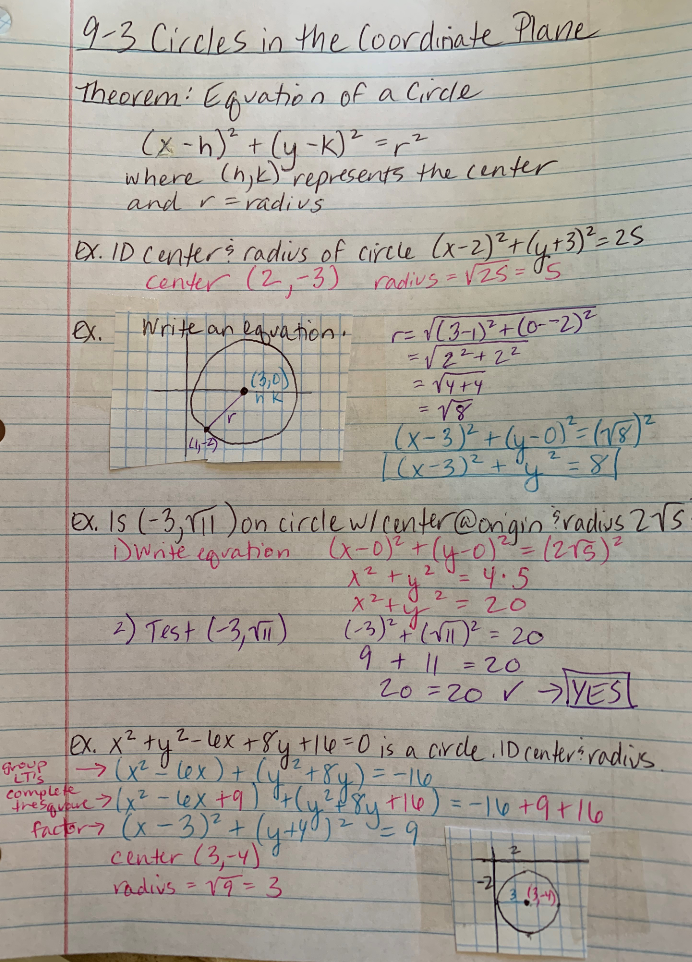 9-3 Circles in the Coordinate Plane
Theorem: Equation of a Circle
(x-h)² + (y-k)² = r²
where (h,k) represents the center
and r = radius
Ex. ID center & radius of circle (x-2)²+(y+3)²=25
center (2,-3) radius = √25 = 5
Ex. Write an equation.
(3,0)
h k
r
(1,-2)
r = √(3-1)²+(0--2)²
= √2²+2²
= √4+4
= √8
(x-3)²+(y-0)²=(√8)²
(x-3)²+y²=8
Ex. Is (-3,√11) on circle w/center@origin & radius 2√5
1) Write equation (x-0)²+(y-0)²=(2√5)²
x²+y² = 4·5
x²+y² = 20
2) Test (-3,√11) (-3)²+(√11)² = 20
9 + 11 = 20
20 = 20 ✓ → YES
Ex. x²+y²-6x+8y+16=0 is a circle. ID center & radius.
group LT's → (x²-6x)+(y²+8y) = -16
complete the square → (x²-6x+9)+(y²+8y+16) = -16+9+16
factor → (x-3)²+(y+4)² = 9
center (3,-4)
radius = √9 = 3
2
-2
3 (3,-4)